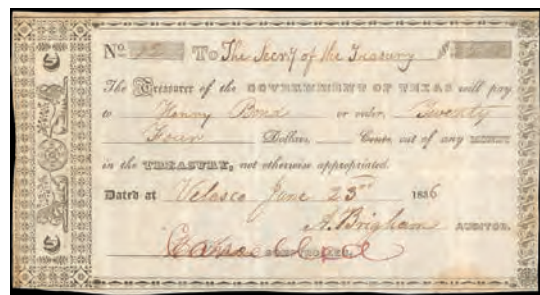 No. To The Secry of the Treasury $
The Treasurer of the GOVERNMENT OF TEXAS will pay
to Henry Bond or order, Twenty
Four Dollars, Cents, out of any MONEY
in the TREASURY, not otherwise appropriated.
Dated at Velasco June 23rd 1836
A. Brigham AUDITOR.